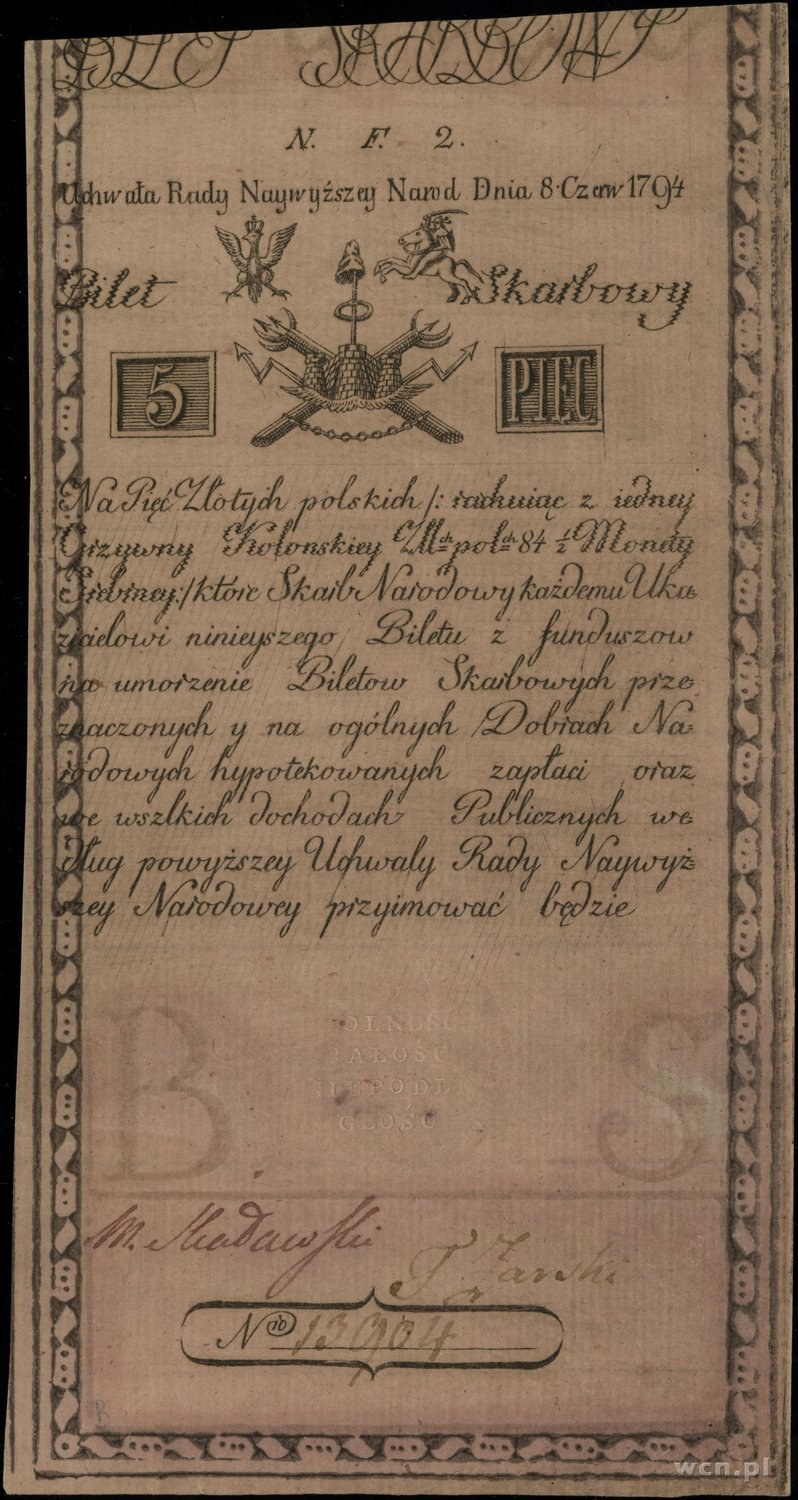 BILET SKARBOWY
N. F. 2.
Uchwała Rady Naywyższey Narod Dnia 8 Czerw 1794
Bilet Skarbowy
5 PIĘC
Na Pięć Złotych polskich /: rachuiąc z iedney
Grzywny Kolonskiey Złłch pol:ch 84 1/2 Monety
Srebrney:/ które Skarb Narodowy każdemu Uka
zicielowi ninieyszego Biletu z funduszow
na umorzenie Biletow Skarbowych prze
znaczonych y na ogólnych Dobrach Na
rodowych hypotekowanych zapłaci oraz
we wszlkich dochodach Publicznych we
dług powyższey Uchwały Rady Naywyż
szey Narodowey przyimować będzie
B S
WOLNOŚĆ
CAŁOŚĆ
NIEPODLE
GŁOŚĆ
M. Skadawski
T Żarski
Nro 13904
wcn.pl